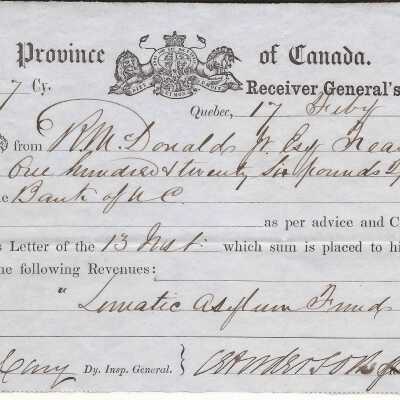 Province of Canada.
7 Cy. Receiver General's
Quebec, 17 Feby
from R. McDonald Esq
One hundred & twenty six pounds
Bank of U C
as per advice and C
s Letter of the 13 Inst. which sum is placed to hi
ne following Revenues:
" Lunatic Asylum Fund
Cary Dy. Insp. General. } C E Anderson